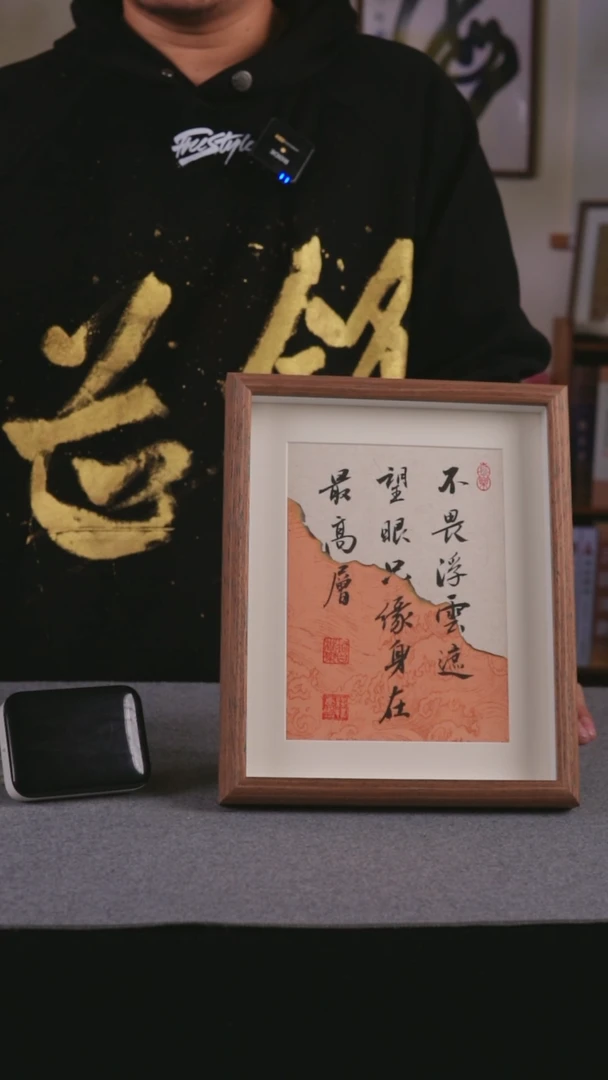 FreeStyle
不畏浮雲遮
望眼只緣身在
最高層